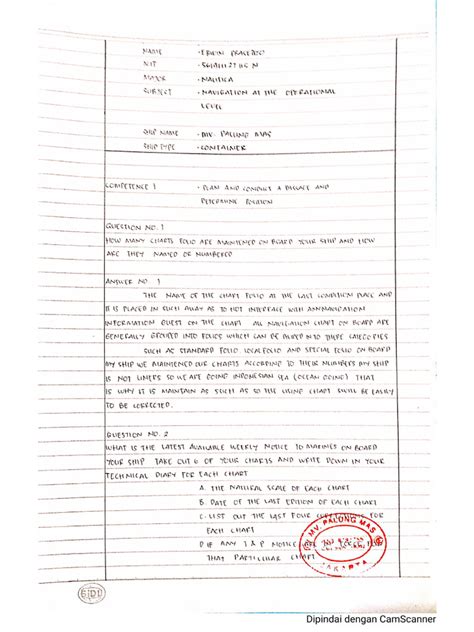 NAME : ERWIN PRASETYO
NIT
MAJOR : NAUTICA
SUBJECT : NAVIGATION AT THE OPERATIONAL
LEVEL
SHIP NAME : MV. PALUNG MAS
SHIP TYPE : CONTAINER
COMPETENCE 1 : PLAN AND CONDUCT A PASSAGE AND
DETERMINE POSITION
QUESTION NO. 1
HOW MANY CHARTS FOLIO ARE MAINTENED ON BOARD YOUR SHIP AND HOW
ARE THEY NAMED OR NUMBERED
ANSWER NO. 1
THE NAME OF THE CHART FOLIO AT THE LAST CONDITION PLACE AND
IT IS PLACED IN SUCH AWAY AS TO NOT INTERFACE WITH ANY NAVIGATION
INFORMATION GUEST ON THE CHART ALL NAVIGATION CHART ON BOARD ARE
GENERALLY GROUPED INTO FOLIOS WHICH CAN BE INTO THREE CATEGORIES
SUCH AS STANDARD FOLIO LOCAL FOLIO AND SPECIAL FOLIO ON BOARD
MY SHIP WE MAINTAINED OUR CHARTS ACCORDING TO THEIR NUMBERS MY SHIP
IS NOT LINERS SO WE ARE GOING INDONESIAN SEA (OCEAN GOING) THAT
IS WHY IT IS MAINTAIN AS SUCH AS SO THE USING CHART WILL BE EASILY
TO BE CORRECTED.
QUESTION NO. 2
WHAT IS THE LATEST AVAILABLE WEEKLY NOTICE TO MARINES ON BOARD
YOUR SHIP TAKE OUT 6 OF YOUR CHARTS AND WRITE DOWN IN YOUR
TECHNICAL DIARY FOR EACH CHART
A. THE NATURAL SCALE OF EACH CHART
B. DATE OF THE LAST EDITION OF EACH CHART
C. LIST OUT THE LAST FOUR CORRECTIONS FOR
EACH CHART
D IF ANY T & P NOTICE FOR
THAT PARTICULAR CHART
MV. PALUNG MAS
JAKARTA
SIDU
Dipindai dengan CamScanner